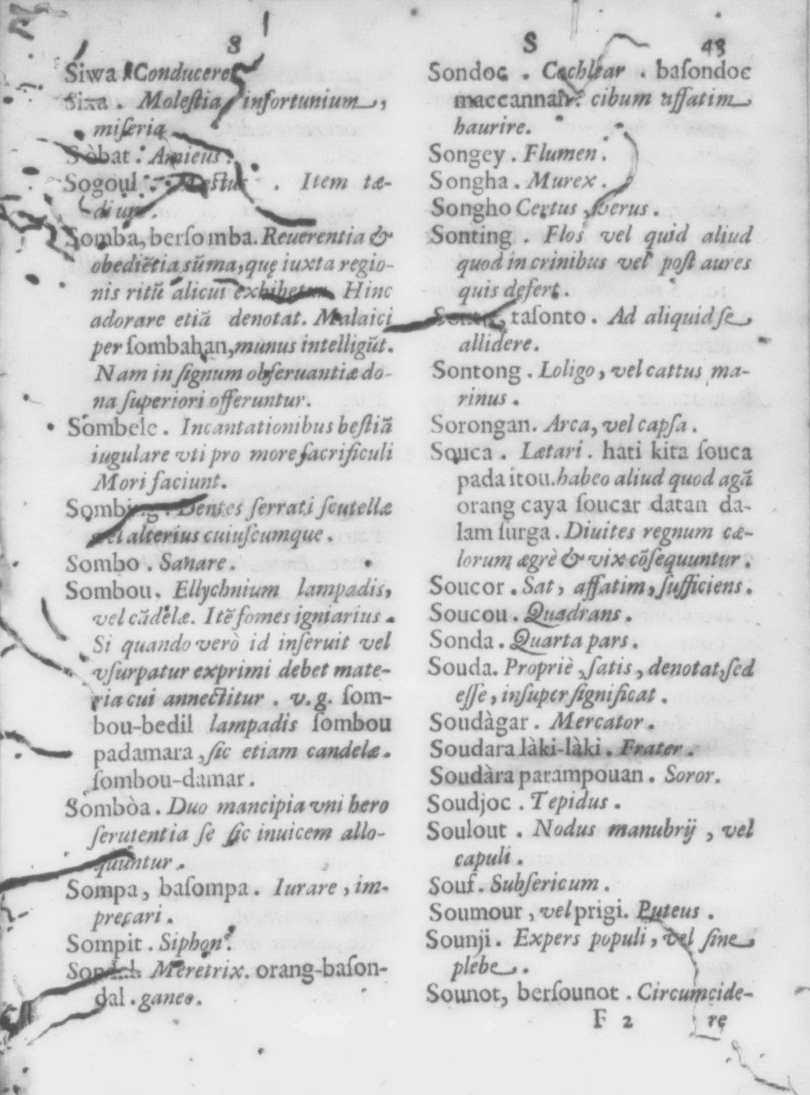 S
Siwa. Conducere.
Sixa. Molestia, infortunium,
miseria
Sòbat. Amicus.
Sogoul. Item tæ-
dium.
Somba, berso mba. Reuerentia &
obediẽtia sũma, quę iuxta regio-
nis ritũ alicui exhibetur. Hinc
adorare etiã denotat. Malaici
per sombahan, munus intelligũt.
Nam in signum obseruantiæ do-
na superiori offeruntur.
Sombele. Incantationibus bestiã
iugulare vti pro more sacrificuli
Mori faciunt.
Sombing. Dentes serrati scutellæ
vel alterius cuiuscumque.
Sombo. Sanare.
Sombou. Ellychnium lampadis,
vel cãdelæ. Itẽ fomes igniarius.
Si quando verò id inseruit vel
vsurpatur exprimi debet mate-
ria cui annectitur. v. g. som-
bou-bedil lampadis sombou
padamara, sic etiam candelæ.
sombou-damar.
Sombòa. Duo mancipia vni hero
serutentia se sic inuicem allo-
quuntur.
Sompa, basompa. Iurare, im-
precari.
Sompit. Siphon.
Sondal. Meretrix. orang-bason-
dal. ganeo.
S 43
Sondoc. Cochlear. basondoc
maccannan. cibum affatim
haurire.
Songey. Flumen.
Songha. Murex.
Songho Certus, verus.
Sonting. Flos vel quid aliud
quod in crinibus vel post aures
quis defert.
Sonto, tasonto. Ad aliquid se
allidere.
Sontong. Loligo, vel cattus ma-
rinus.
Sorongan. Arca, vel capsa.
Souca. Lætari. hati kita souca
pada itou. habeo aliud quod agã
orang caya soucar datan da-
lam surga. Diuites regnum cæ-
lorum ægrè & vix cõsequuntur.
Soucor. Sat, affatim, sufficiens.
Soucou. Quadrans.
Sonda. Quarta pars.
Souda. Propriè, satis, denotat, sed
esse, insuper significat.
Soudàgar. Mercator.
Soudara làki-làki. Frater.
Soudàra parampouan. Soror.
Soudjoc. Tepidus.
Soulout. Nodus manubrij, vel
capuli.
Souf. Subsericum.
Soumour, vel prigi. Puteus.
Sounji. Expers populi, vel sine
plebe.
Sounot, bersounot. Circumcide-
F 2 re